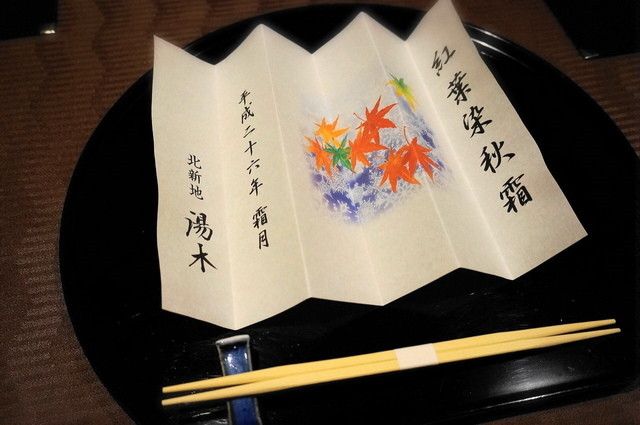 紅葉染秋霜
平成二十六年 霜月
北新地 湯木